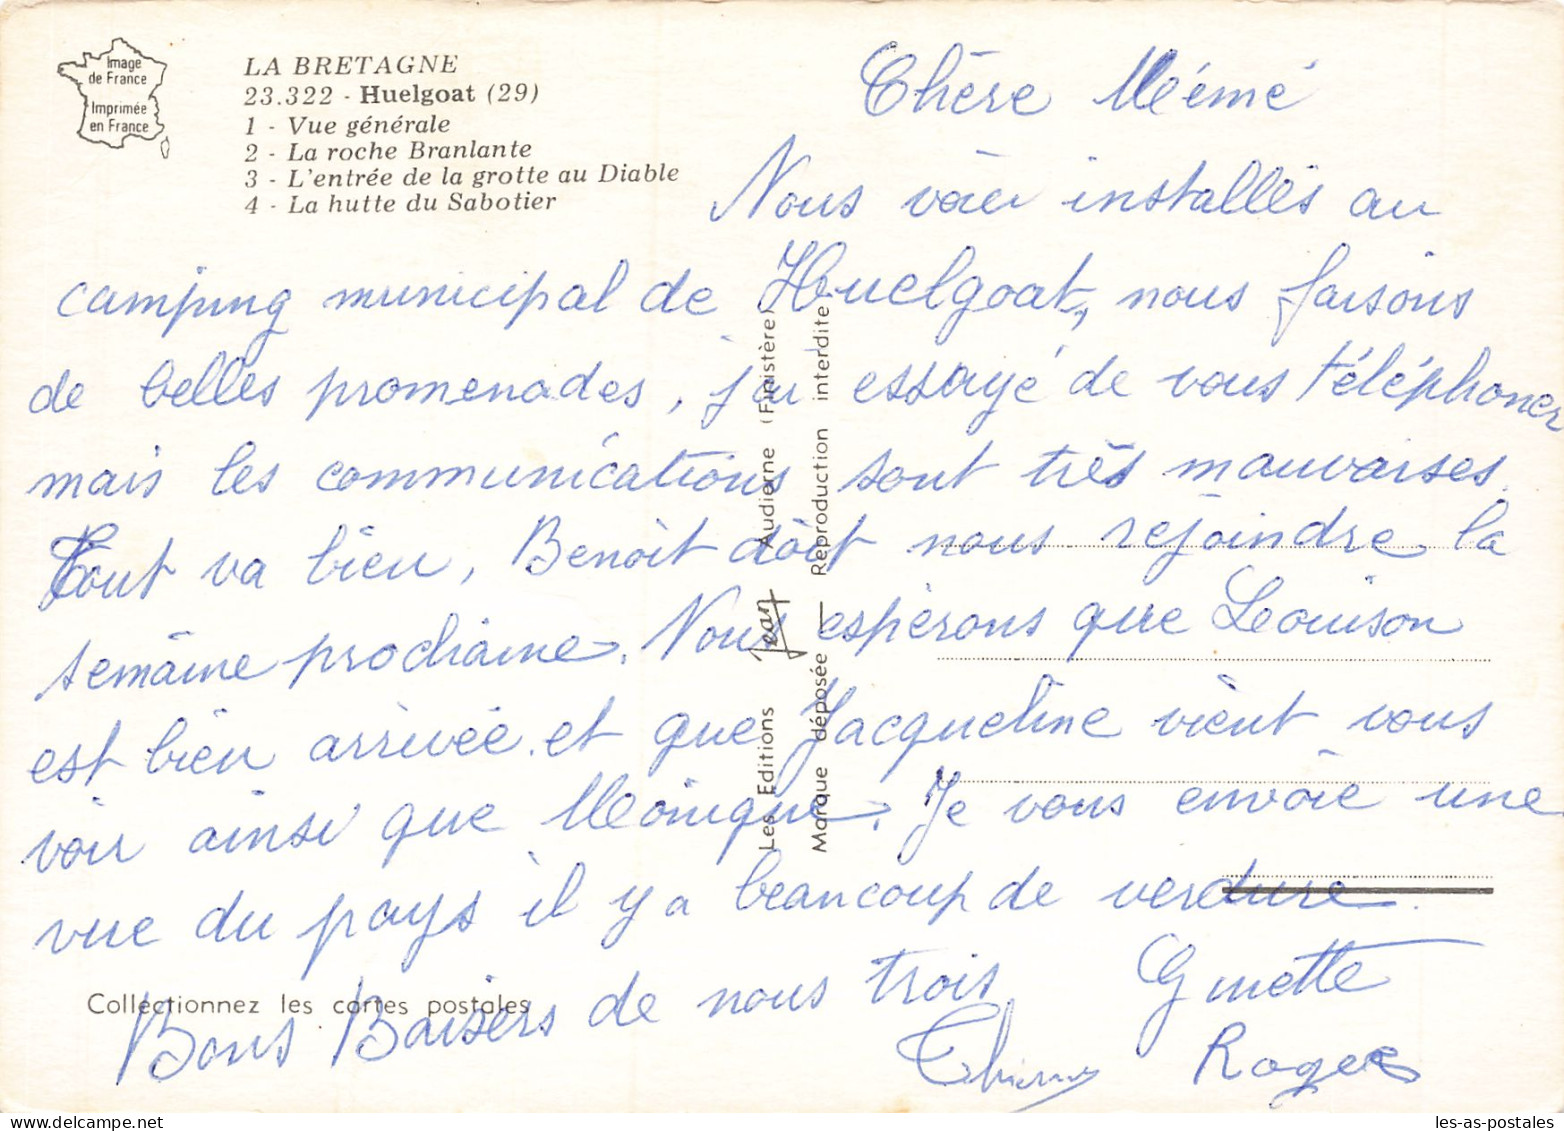 Image
de France
Imprimée
en France
LA BRETAGNE
23.322 - Huelgoat (29)
1 - Vue générale
2 - La roche Branlante
3 - L'entrée de la grotte au Diable
4 - La hutte du Sabotier
Chère Mémé
Nous voici installés au
camping municipal de Huelgoat, nous faisons
de belles promenades, j'ai essayé de vous téléphoner
mais les communications sont très mauvaises.
Tout va bien, Benoit doit nous rejoindre la
semaine prochaine. Nous espérons que Louison
est bien arrivée et que Jacqueline vient vous
voir ainsi que Monique. Je vous envoie une
vue du pays il y a beaucoup de verdure.
Bons Baisers de nous trois Ginette
Thierry Roger
Les Editions Jean Audierne (Finistère)
Marque déposée — Reproduction interdite
Collectionnez les cartes postales
les-as-postales